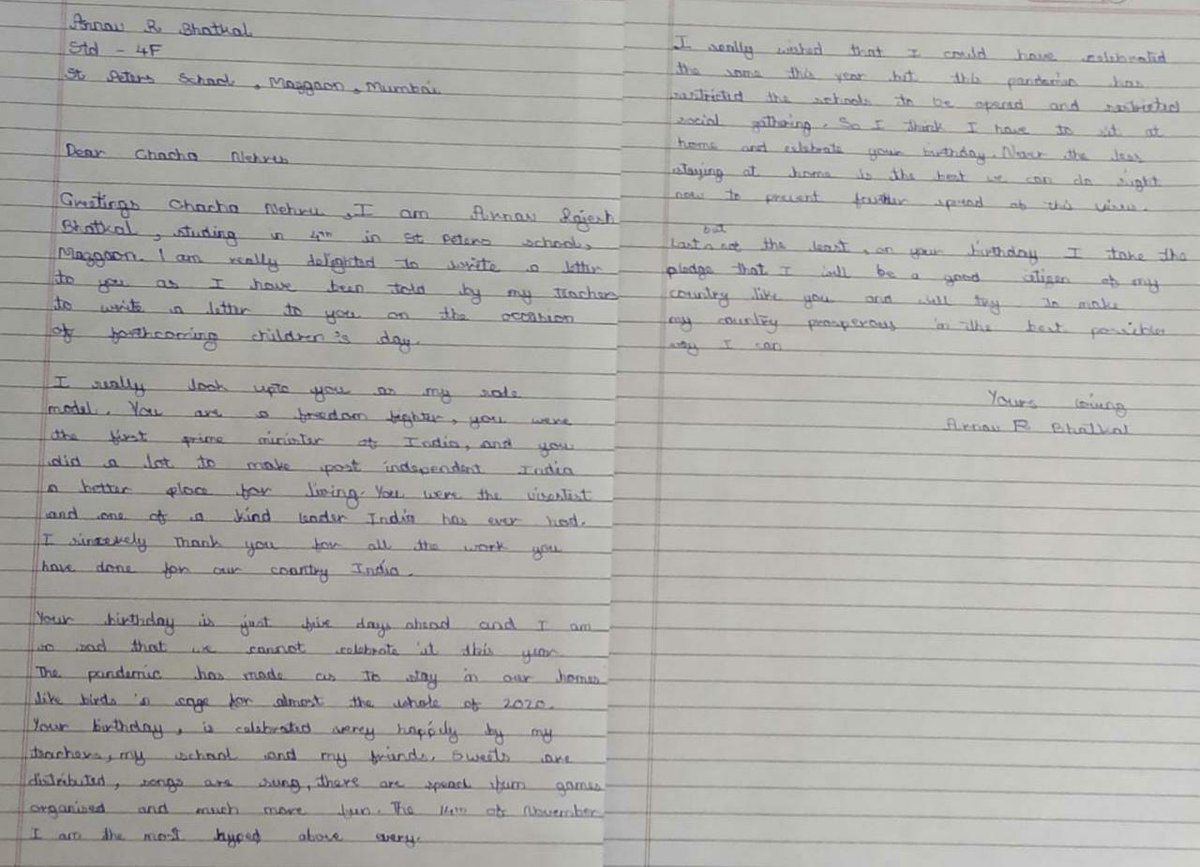 Arnav R Bhatkal
Std - 4F
St Peters School, Mazgaon, Mumbai
Dear Chacha Nehru
Greetings Chacha Nehru, I am Arnav Rajesh
Bhatkal, studing in 4th in St Peters school,
Mazgaon. I am really delighted to write a letter
to you as I have been told by my teachers
to write a letter to you on the occasion
of forthcoming children's day.
I really look upto you as my role
model. You are a freedom fighter, you were
the first prime minister of India, and you
did a lot to make post independent India
a better place for living. You were the
and one of a kind leader India has ever had.
I sincerely Thank you for all the work you
have done for our country India.
Your birthday is just five days ahead and I am
so sad that we cannot celebrate it this year
The pandemic has made us to stay in our homes
like birds in cage for almost the whole of 2020.
Your birthday, is celebrated verey happily by my
teachers, my school and my friends. Sweets are
distributed, songs are sung, there are games
organised and much more fun. The 14th of November
I am the most hyped above every.
I really wished that I could have celebrated
the same this year but this pandemic has
restricted the schools to be opened and restricted
social gathering. So I think I have to sit at
home and celebrate your birthday. Never the less
staying at home is the best we can do right
now to prevent further spread of this virus.
but
Last not the least, on your birthday I take the
pledge that I will be a good citizen of my
country like you and will try to make
my country prosperous in the best possible
way I can
Yours loving
Arnav R Bhatkal